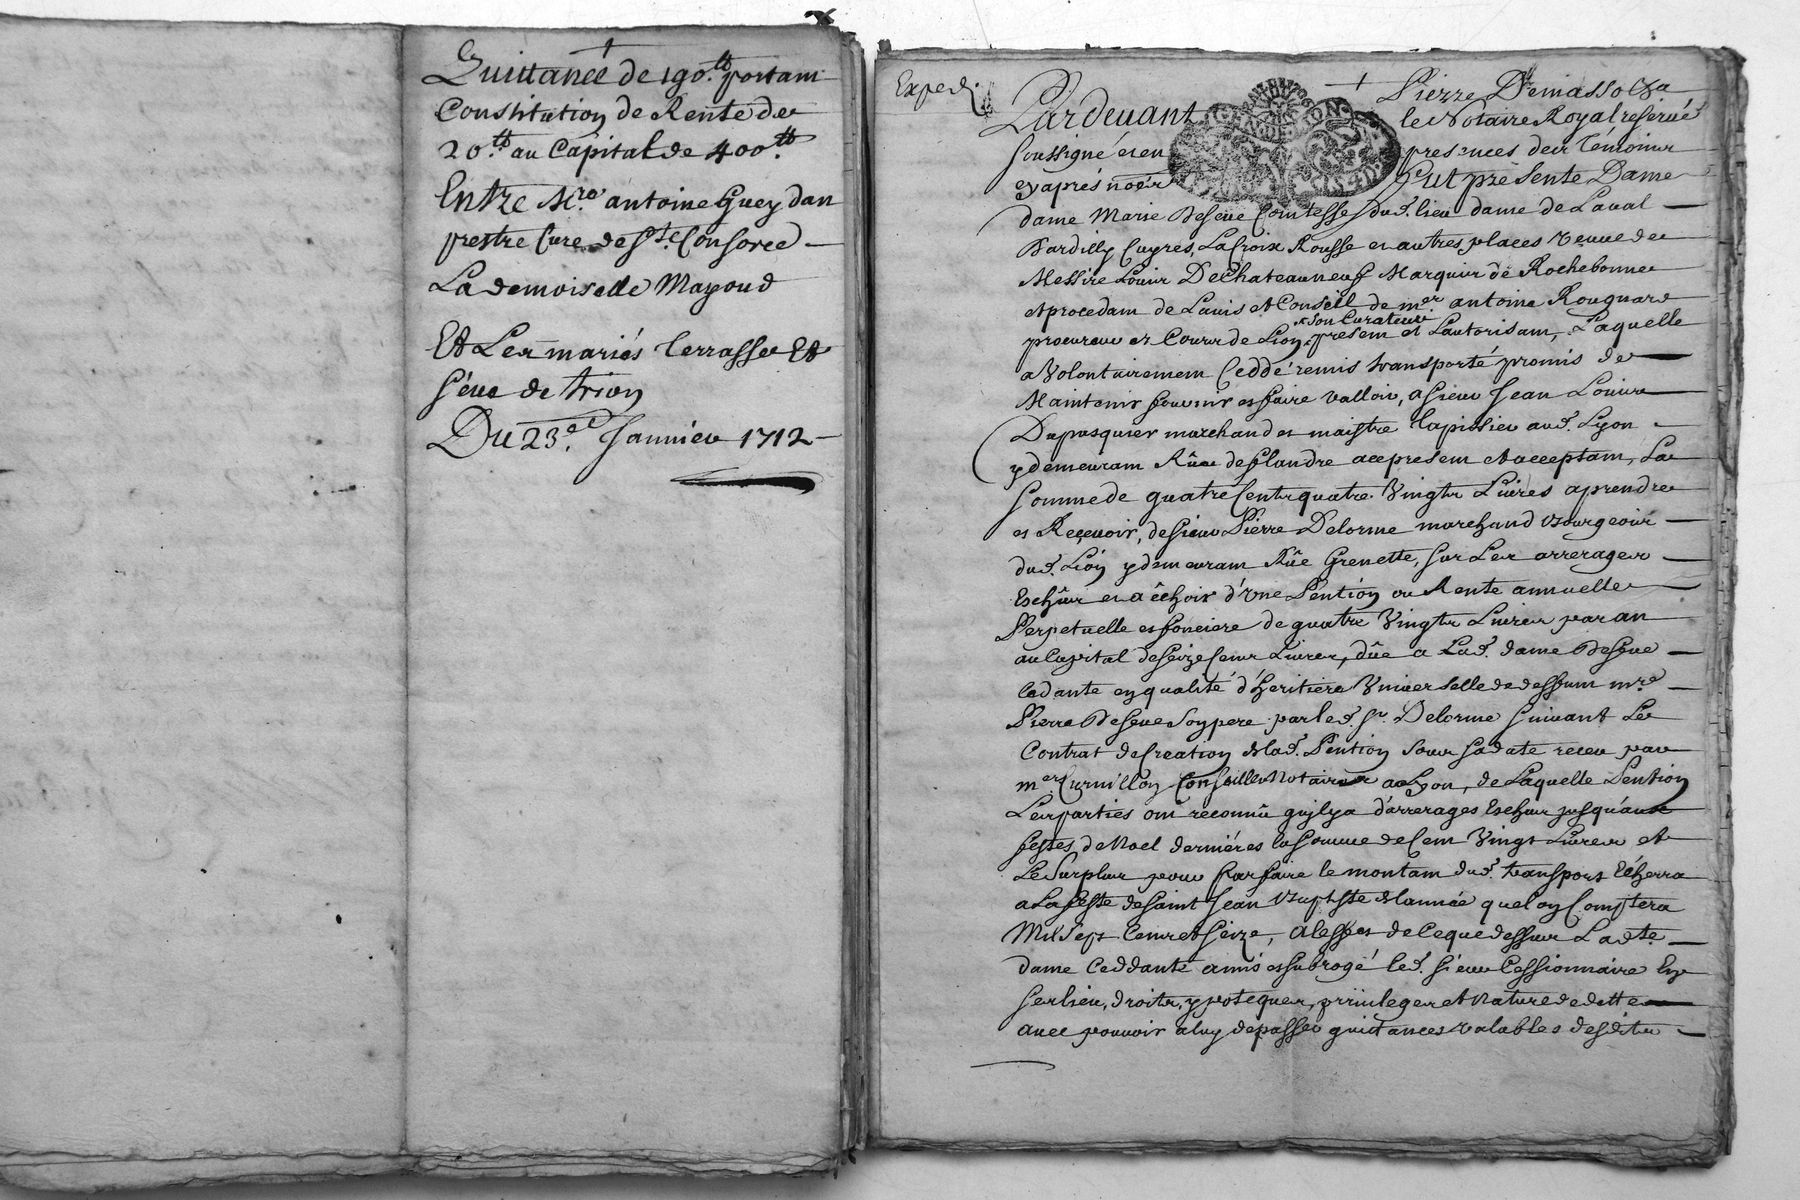 Quittance de 190.tt portant
Constitution de Rente de
20.tt au Capital de 400.tt
Entre Mre antoine Gueydan
prestre Curé de Ste Consorce
La demoiselle Mayoud
Et Les mariés Terrasse Et
Séue de trion
Du 23.e Januier 1712
Exped.
Pierre Demasso
Pardeuant le Notaire Royal reserué
soussigné et en presences des témoins
cy aprés fut presente Dame
dame Marie Deseue Comtesse dud. lieu dame de Laual
Dardilly Cuyres, La Croix Rousse et autres places veuue de
Messire Louis De Chateauneuf Marquis de Rochebonne
et procedant de Lauis et Conseil de mer antoine Rougnard
procureur ez Cours de Lion, son Curateur present et Lautorisant, Laquelle
a Volontairement Ceddé remis transporté promis de
Maintenir fournir et faire valloir, a sieur Jean Louis
Dupasquier marchand et maistre tapissier aud. Lyon
y demeurant Rüe de flandre ace present et acceptant, La
somme de quatre Cents quatre Vingts Liures aprendre
et Receuoir, de sieur Pierre Delorme marchand bourgeois
dud. Lion y demeurant Rüe Grenette, sur Les arrerages
Eschûs et a êchoir d'vne Pention ou Rente annuelle
Perpetuelle et fonciere de quatre Vingts Liures par an
au Capital de seize Cents Liures, düe a Lad. dame Deseue
Cedante en qualité d'heritiere Vniverselle de deffunt mre
Pierre Deseue son pere par led. sr. Delorme suiuant Le
Contrat de Creation de lad. Pention sous sa date receu par
me. Conseiller Notaire a Lyon, de Laquelle Pention
Les parties ont reconnû quil y a d'arrerages Eschus jusqu'aux
festes de Noel dernieres la somme de Cent Vingt Liures et
Le Surplus pour parfaire le montant dud. transport Echerra
a La feste de saint Jean Baptiste de lannée que lon Comptera
Mil Sept Cents et Seize, a lesfet de Ce que dessus Ladte
dame Ceddante a mis et subrogé led. sieur Cessionnaire En
ses lieu, droits, ypoteques, priuileges et Nature de dette
auec pouuoir a luy de passer quittances valables desdits